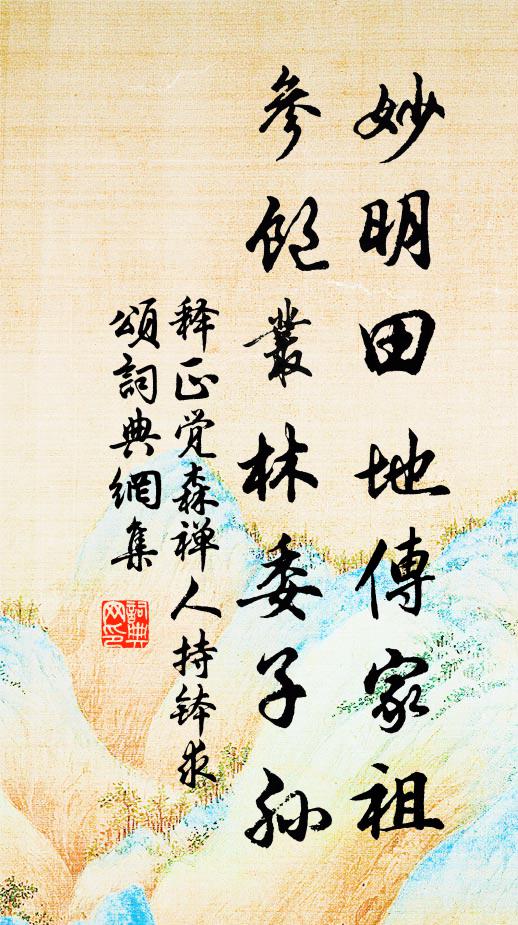 妙明田地傳家祖
參飽叢林委子孫
释正觉森禅人持钵求
頌詞典網集
詞典网印